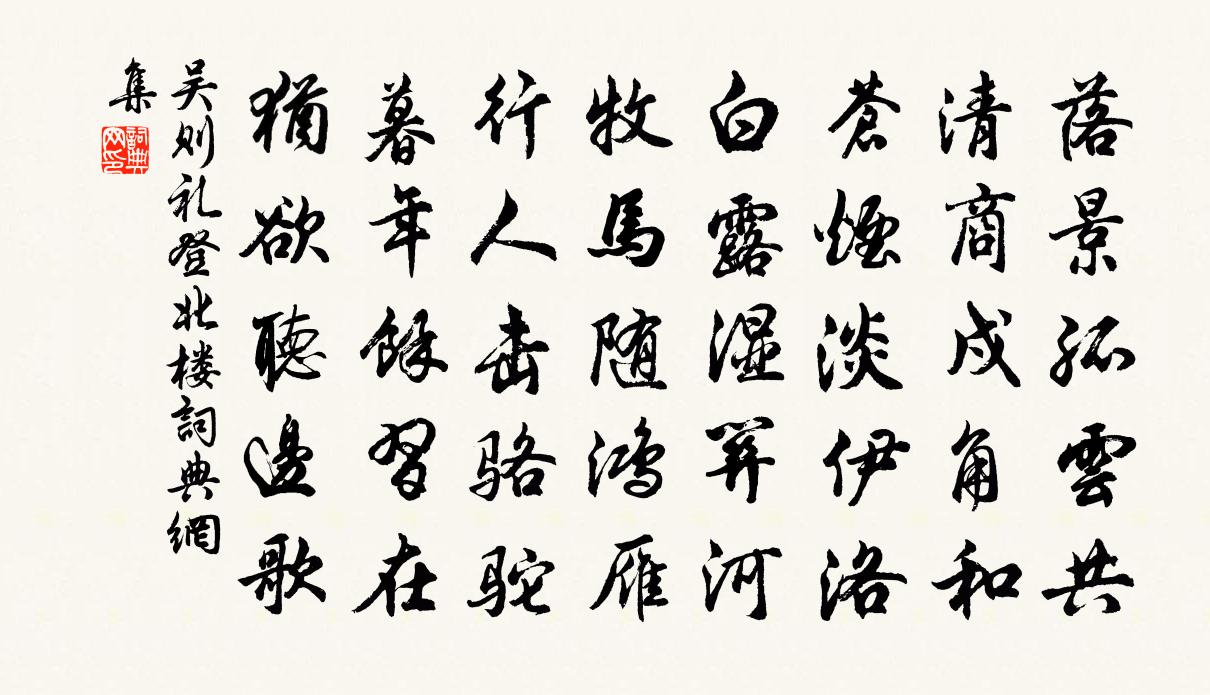 落景孤雲共
清商戍角和
蒼煙淡伊洛
白露湿關河
牧馬随鸿雁
行人击骆驼
暮年餘習在
猶欲聽邊歌
吴则礼登北楼詞典網
集
詞典网印